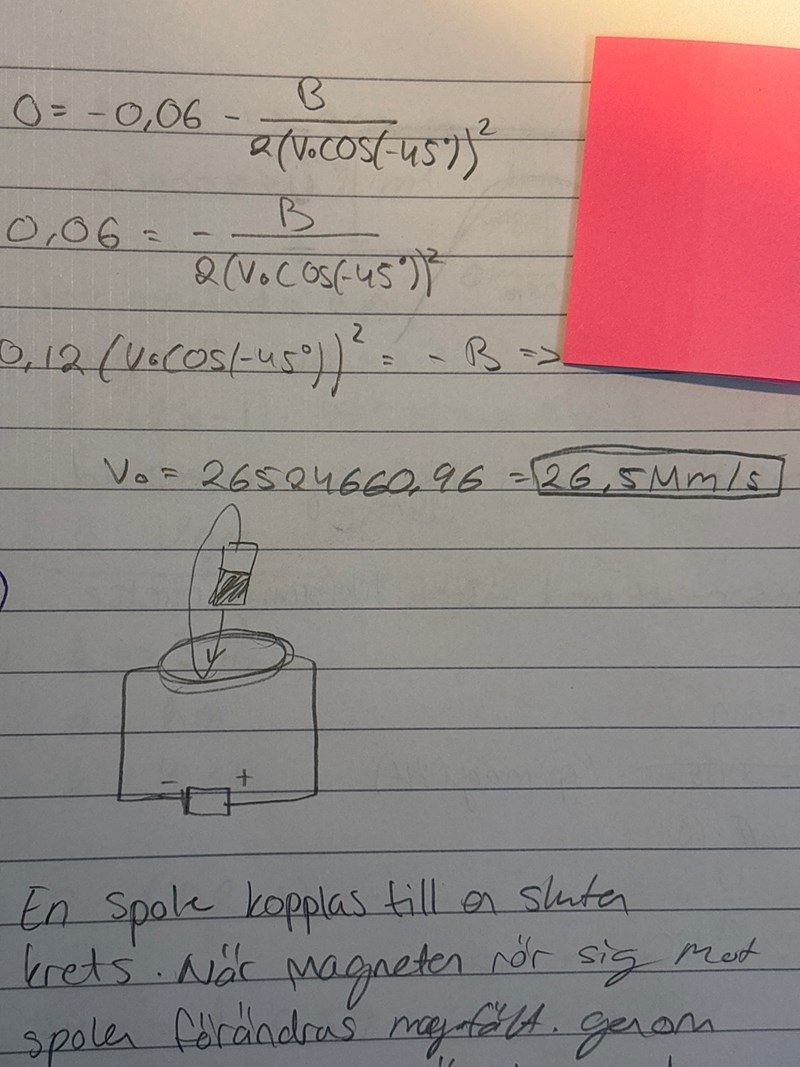 0 = -0,06 - B / 2(V₀cos(-45°))²
0,06 = - B / 2(V₀cos(-45°))²
0,12 (V₀cos(-45°))² = - B =>
V₀ = 26524660,96 = 26,5Mm/s
- +
En spole kopplas till en sluten
krets. När magneten rör sig mot
spolen förändras mag.fält. genom